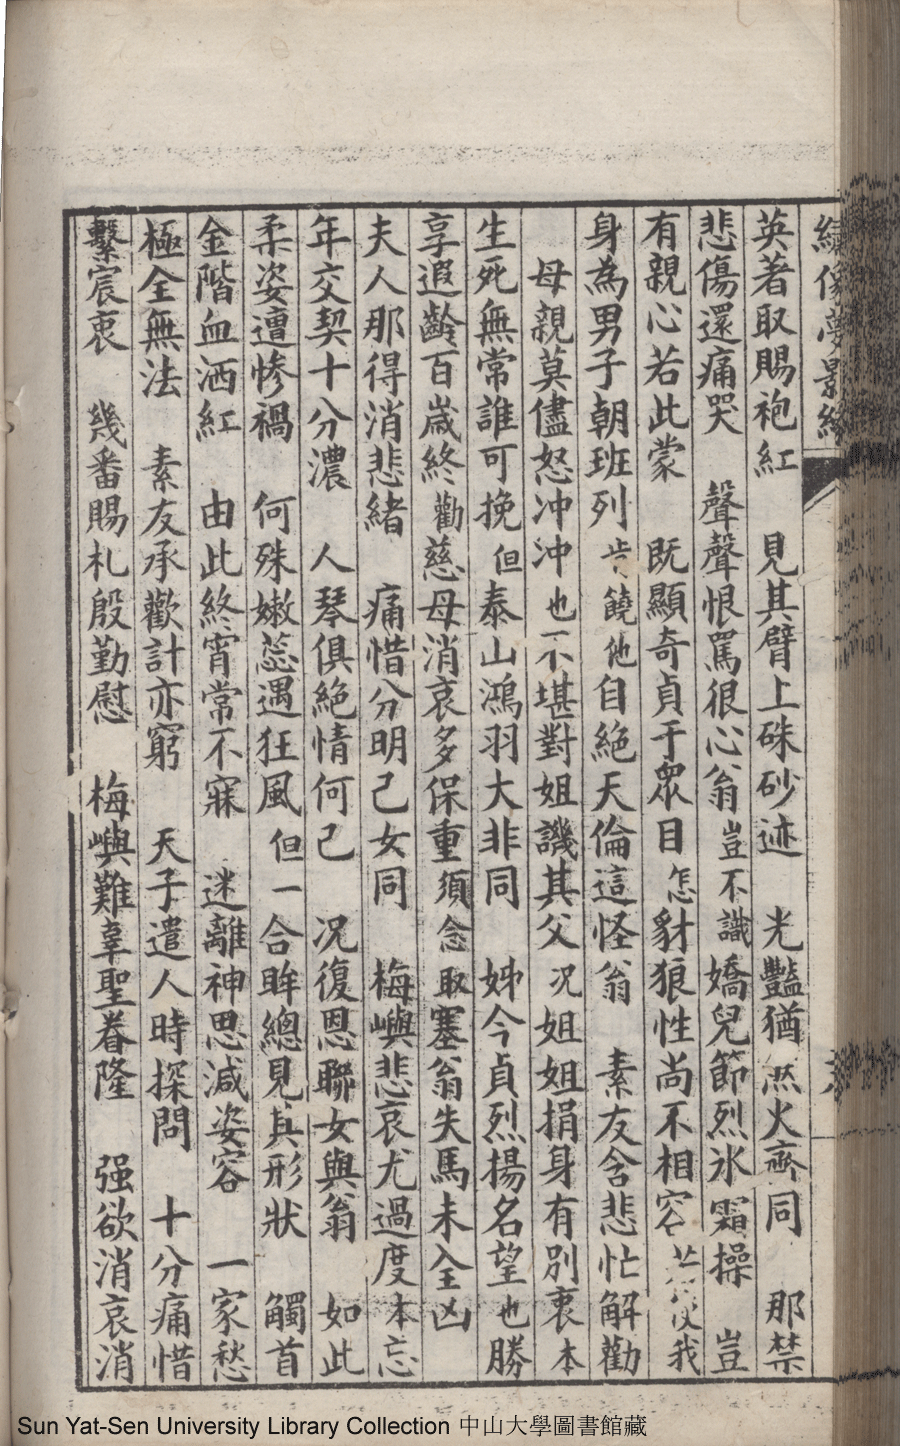 繡像夢影緣
英著取賜袍紅　見其臂上硃砂迹　光豔猶然火齊同　那禁
悲傷還痛哭　聲聲恨罵很心翁豈不識嬌兒節烈氷霜操　豈
有親心若此蒙　既顯奇貞于眾目怎豺狼性尚不相容　我
身為男子朝班列肯饒他自絕天倫這怪翁　素友含悲忙解勸
母親莫儘怒冲冲也不堪對姐譏其父況姐姐捐身有別衷本
生死無常誰可挽但泰山鴻羽大非同　姊今貞烈揚名望也勝
享遐齡百歲終勸慈母消哀多保重須念取塞翁失馬未全凶
夫人那得消悲緒　痛惜分明己女同　梅嶼悲哀尤過度本忘
年交契十分濃　人琴俱絕情何已　況復恩聯女與翁　如此
柔姿遭慘禍　何殊嫩蕊遇狂風但一合眸總見真形狀　觸首
金階血洒紅　由此終宵常不寐　迷離神思減姿容　一家愁
極全無法　素友承歡計亦窮　天子遣人時探問　十分痛惜
繫宸衷　幾番賜札殷勤慰　梅嶼難辜聖眷隆　强欲消哀消
Sun Yat-Sen University Library Collection 中山大學圖書館藏